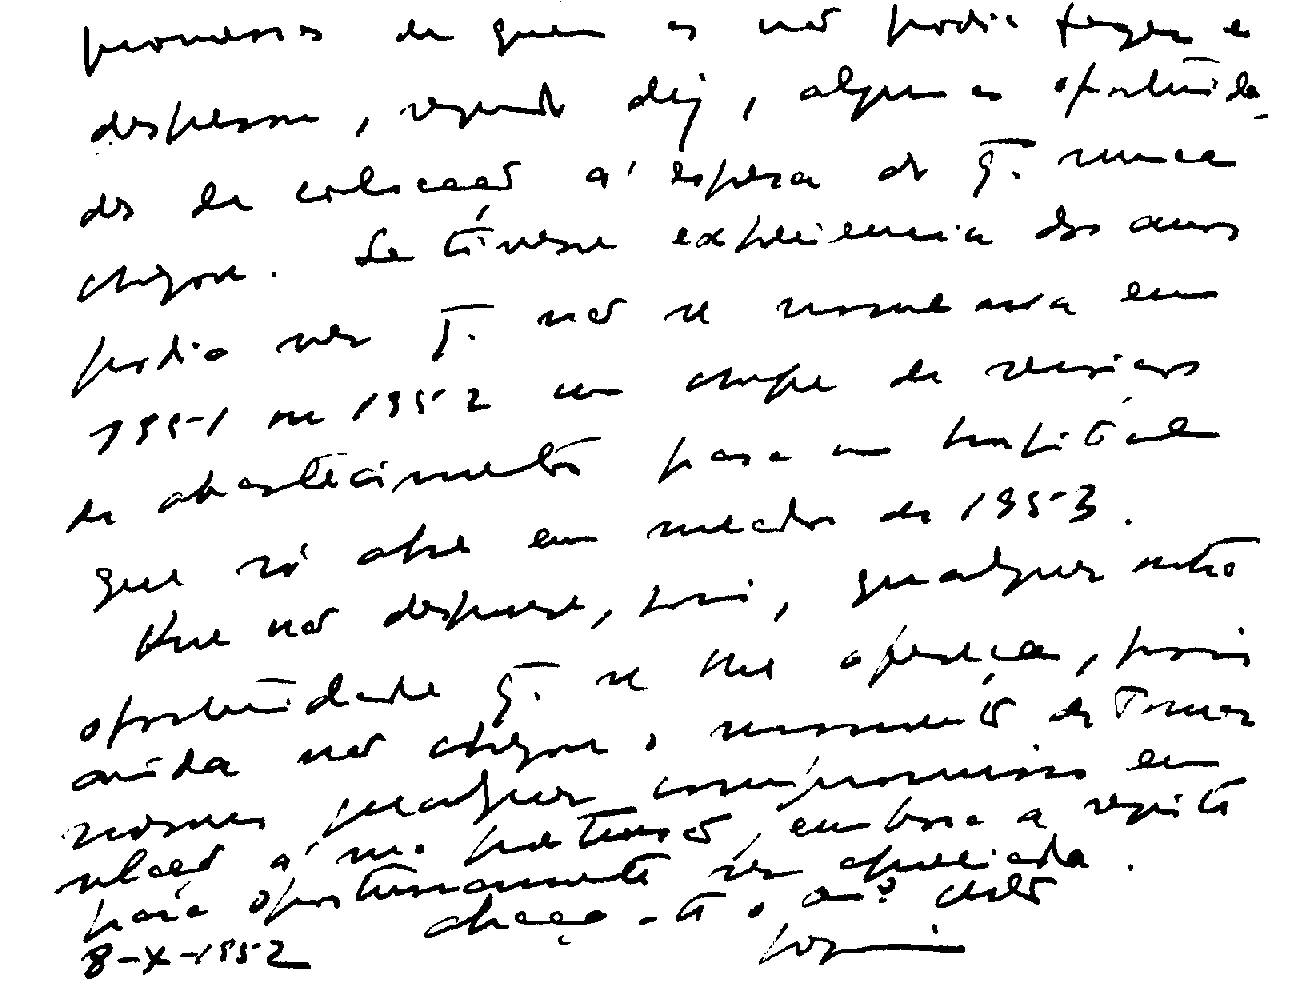 promessas de quem as não podia fazer e
desprezou, segundo diz, algumas oportunida-
des de colocação á espera do q. nunca
chegou. Se tivesse experiencia dos anos
podia ver q. não se nomeava em
1951 ou 1952 um chefe de serviços
de abastecimento para um hospital
que só abre em meados de 1953.
Que não despreze, pois, qualquer outra
oportunidade q. se lhe ofereça, pois
ainda não chegou o momento de tomar
nosso qualquer compromisso em
relação á m. pretensão, embora a registe
para oportunamente ser apreciada.
Abraça-te o am.º
8-X-1952